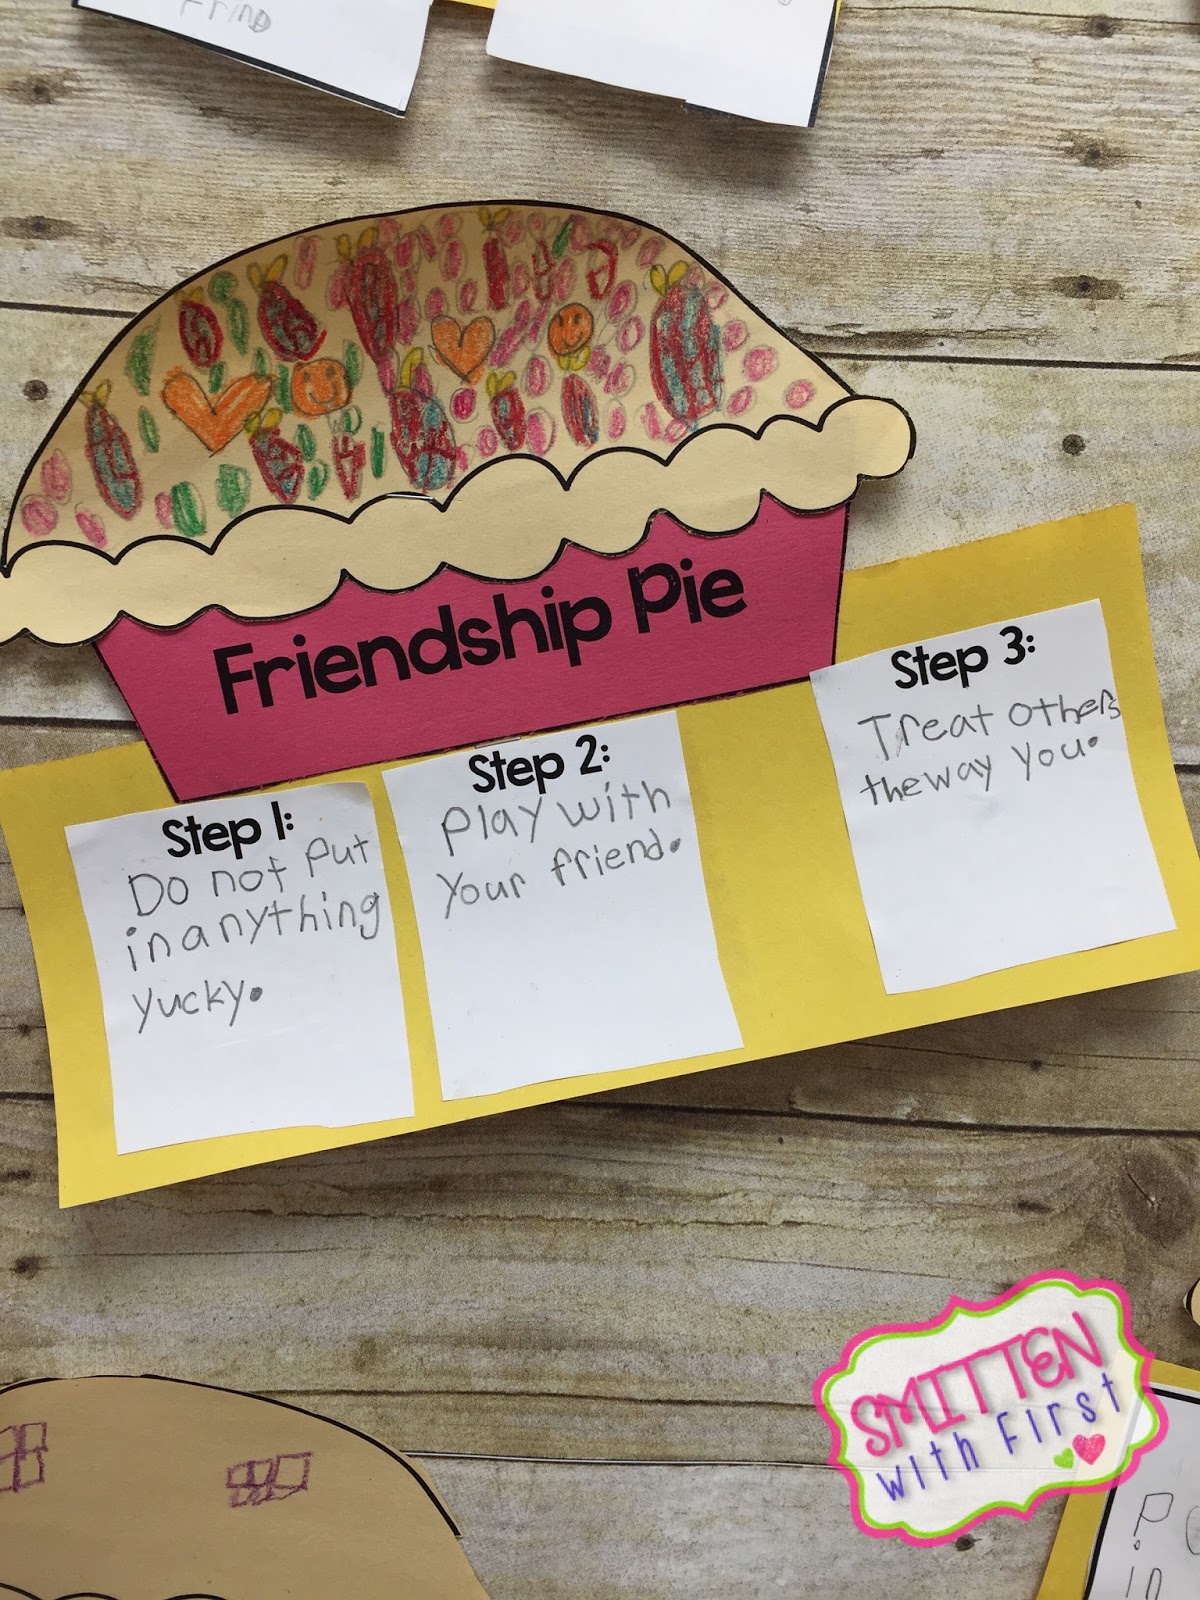 Frind
Friendship Pie
Step 1:
Do not put
in anything
yucky.
Step 2:
Play with
your friend.
Step 3:
Treat others
the way you.
SMITTEN
with First
P
in